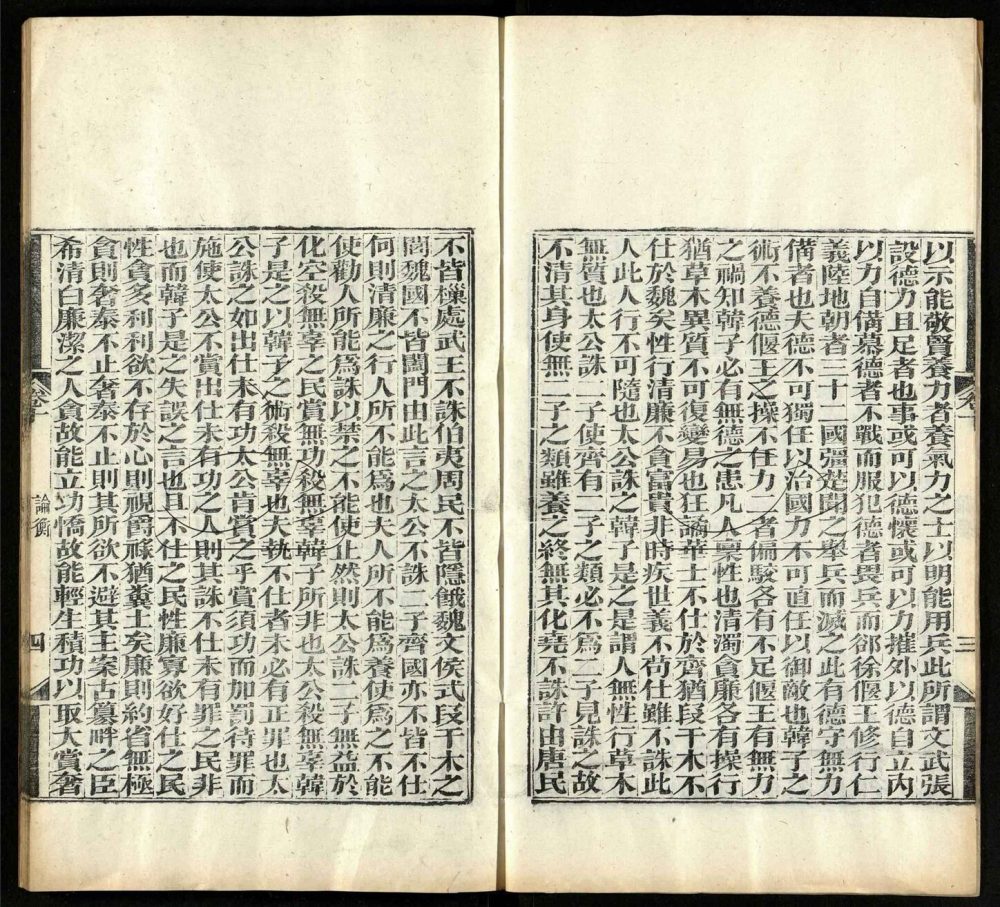 以示能敬賢養力者養氣力之士以明能用兵此所謂文武張
設德力且足者也事或可以德懷或可以力摧外以德自立內
以力自備慕德者不戰而服犯德者畏兵而郤徐偃王修行仁
義陸地朝者三十二國彊楚聞之舉兵而滅之此有德守無力
備者也夫德不可獨任以治國力不可直任以御敵也韓子之
術不養德偃王之操不任力二者偏駮各有不足偃王有無力
之禍知韓子必有無德之患凡人稟性也清濁貪廉各有操行
猶草木異質不可復變易也狂譎華士不仕於齊猶段干木不
仕於魏矣性行清廉不貪富貴非時疾世義不苟仕雖不誅此
人此人行不可隨也太公誅之韓子是之是謂人無性行草木
無質也太公誅二子使齊有二子之類必不爲二子見誅之故
不清其身使無二子之類雖養之終無其化堯不誅許由唐民
三
不皆樔處武王不誅伯夷周民不皆隱餓魏文侯式段干木之
閭魏國不皆闔門由此言之太公不誅二子齊國亦不皆不仕
何則清廉之行人所不能爲也夫人所不能爲養使爲之不能
使勸人所能爲誅以禁之不能使止然則太公誅二子無益於
化空殺無辜之民賞無功殺無辜韓子所非也太公殺無辜韓
子是之以韓子之術殺無辜也夫執不仕者未必有正罪也太
公誅之如出仕未有功太公肯賞之乎賞須功而加罰待罪而
施使太公不賞出仕未有功之人則其誅不仕未有罪之民非
也而韓子是之失誤之言也且不仕之民性廉寡欲好仕之民
性貪多利利欲不存於心則視爵祿猶糞土矣廉則約省無極
貪則奢泰不止奢泰不止則其所欲不避其主案古篡畔之臣
希清白廉潔之人貪故能立功憍故能輕生積功以取大賞奢
論衡
四